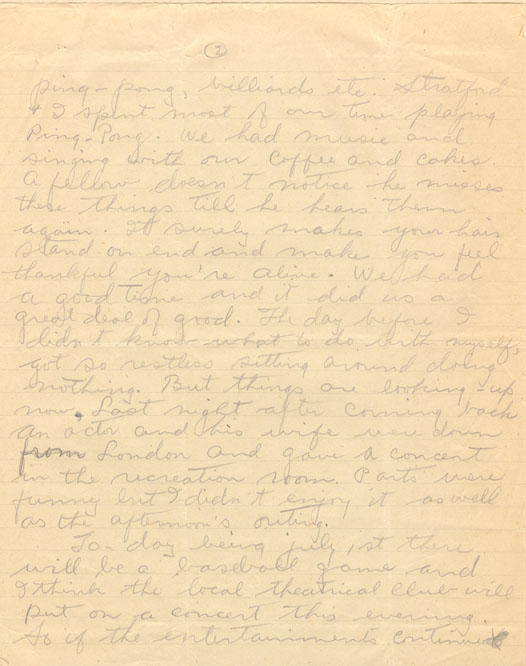 2
ping-pong, billiards etc. Stratford
& I spent most of our time playing
Ping-Pong. We had music and
singing with our coffee and cakes.
A fellow doesn't notice he misses
these things till he hears them
again. It surely makes your hair
stand on end and make you feel
thankful you're alive. We had
a good time and it did us a
great deal of good. The day before I
didn't know what to do with myself,
got so restless sitting around doing
nothing. But things are looking-up
now. Last night after coming back
an actor and his wife were down
from London and gave a concert
in the recreation room. Parts were
funny but I didn't enjoy it as well
as the afternoon's outing.
To-day being July 1st there
will be a baseball game and
I think the local theatrical club will
put on a concert this evening.
So if the entertainments continue